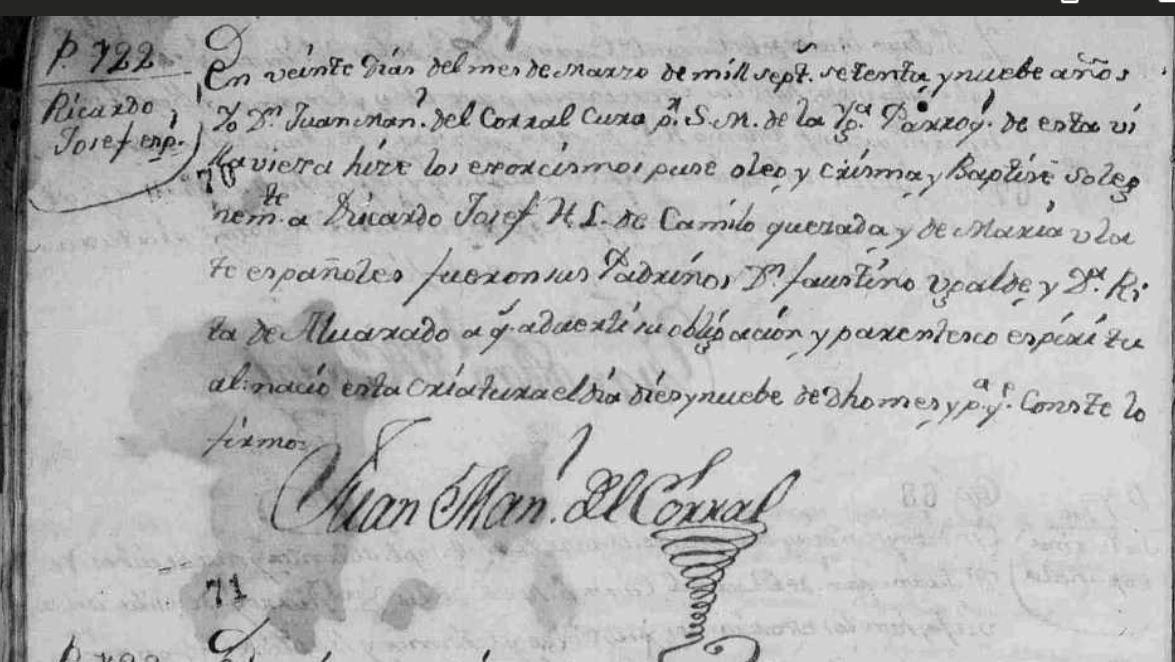 P. 722
Ricardo
Josef esp.
70
En veinte dias del mes de Marzo de mill sept.s setenta, y nuebe años
Yo D.n Juan Man.l del Corral Cura p.r S. M. de la Yg.a Parroq.l de esta vi
lla viexa hize los exorcismos puse oleo, y crisma, y Baptise soleg
nem.te a Ricardo Josef H. L. de Camilo quezada, y de Maria ulla
te españoles fueron sus Padrinos D.n faustino vgalde, y D.a Ri
ta de Alvarado a q. adverti su obligacion, y parentesco espiritu
al: nacio esta criatura el dia dies y nuebe de dho mes, y p.a q.e Conste lo
firmo:
Juan Man.l del Corral
71
P. 723